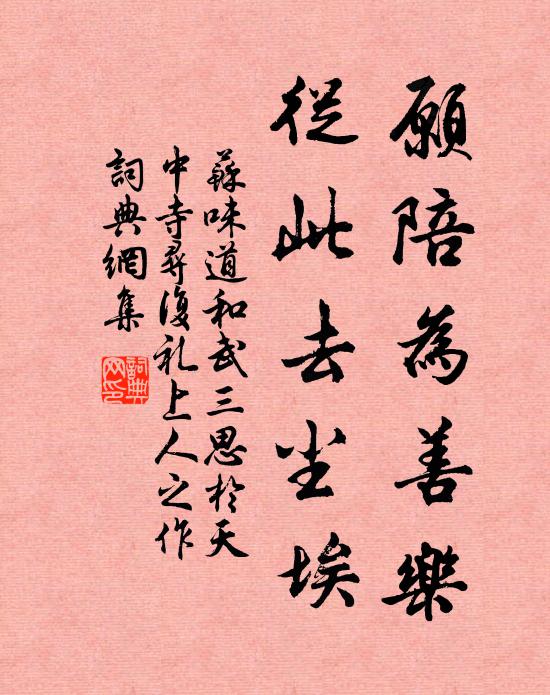 願陪為善樂
從此去尘埃
蘇味道和武三思於天
中寺尋復礼上人之作
詞典網集
詞典
网印